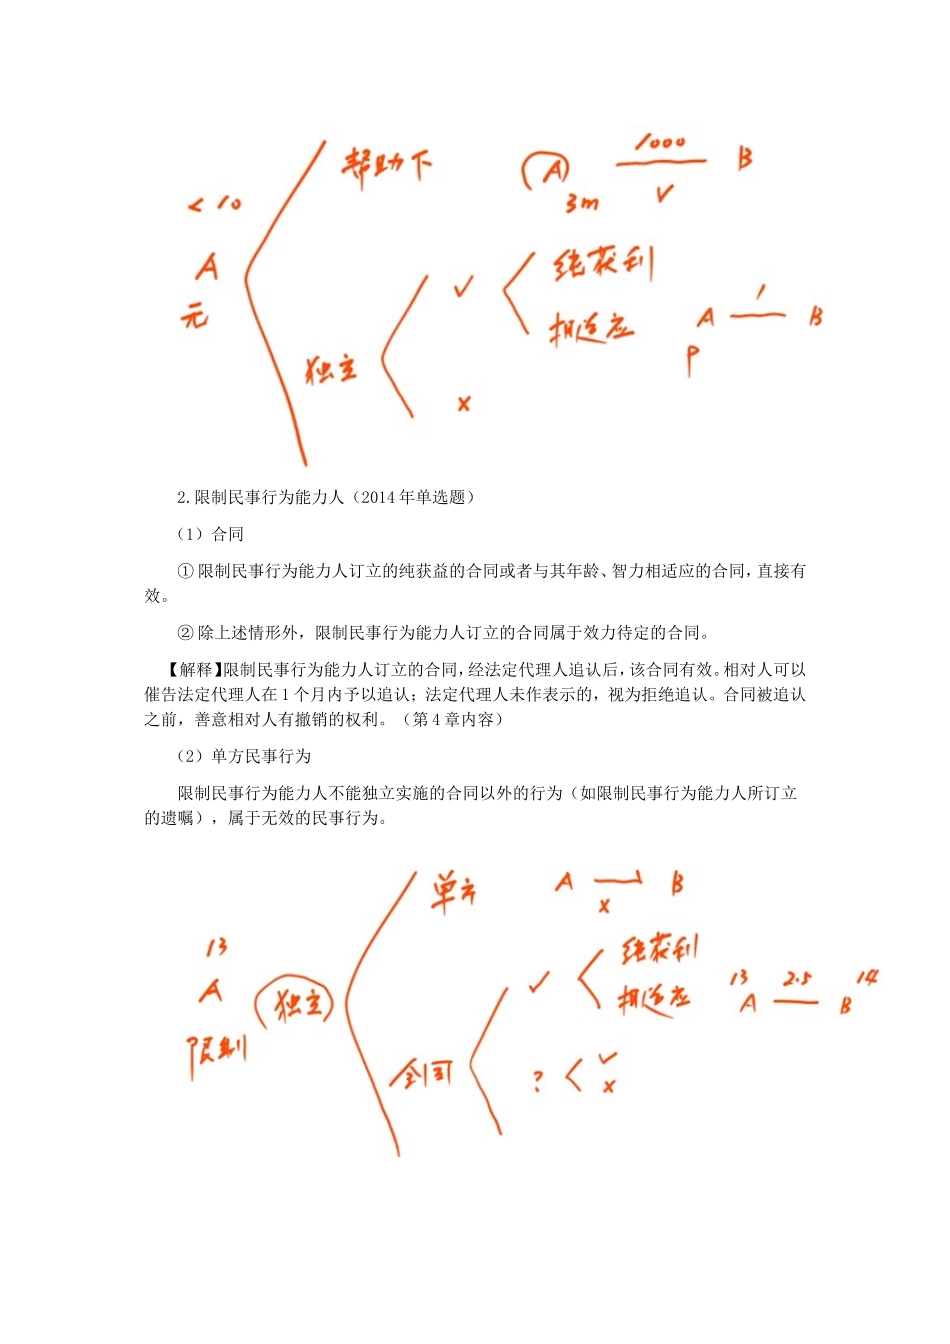 <10
A
无
帮助下
A
3m
1000
√
B
独立
√
纯获利
相适应
A
B
P
x
2.限制民事行为能力人（2014 年单选题）
（1）合同
① 限制民事行为能力人订立的纯获益的合同或者与其年龄、智力相适应的合同，直接有
效。
② 除上述情形外，限制民事行为能力人订立的合同属于效力待定的合同。
【解释】限制民事行为能力人订立的合同，经法定代理人追认后，该合同有效。相对人可以
催告法定代理人在 1 个月内予以追认；法定代理人未作表示的，视为拒绝追认。合同被追认
之前，善意相对人有撤销的权利。（第 4 章内容）
（2）单方民事行为
限制民事行为能力人不能独立实施的合同以外的行为（如限制民事行为能力人所订立
的遗嘱），属于无效的民事行为。
13
A
限制
独立
单方
A
B
x
合同
√
纯获利
相适应
13
2.5
14
A
B
?
√
x